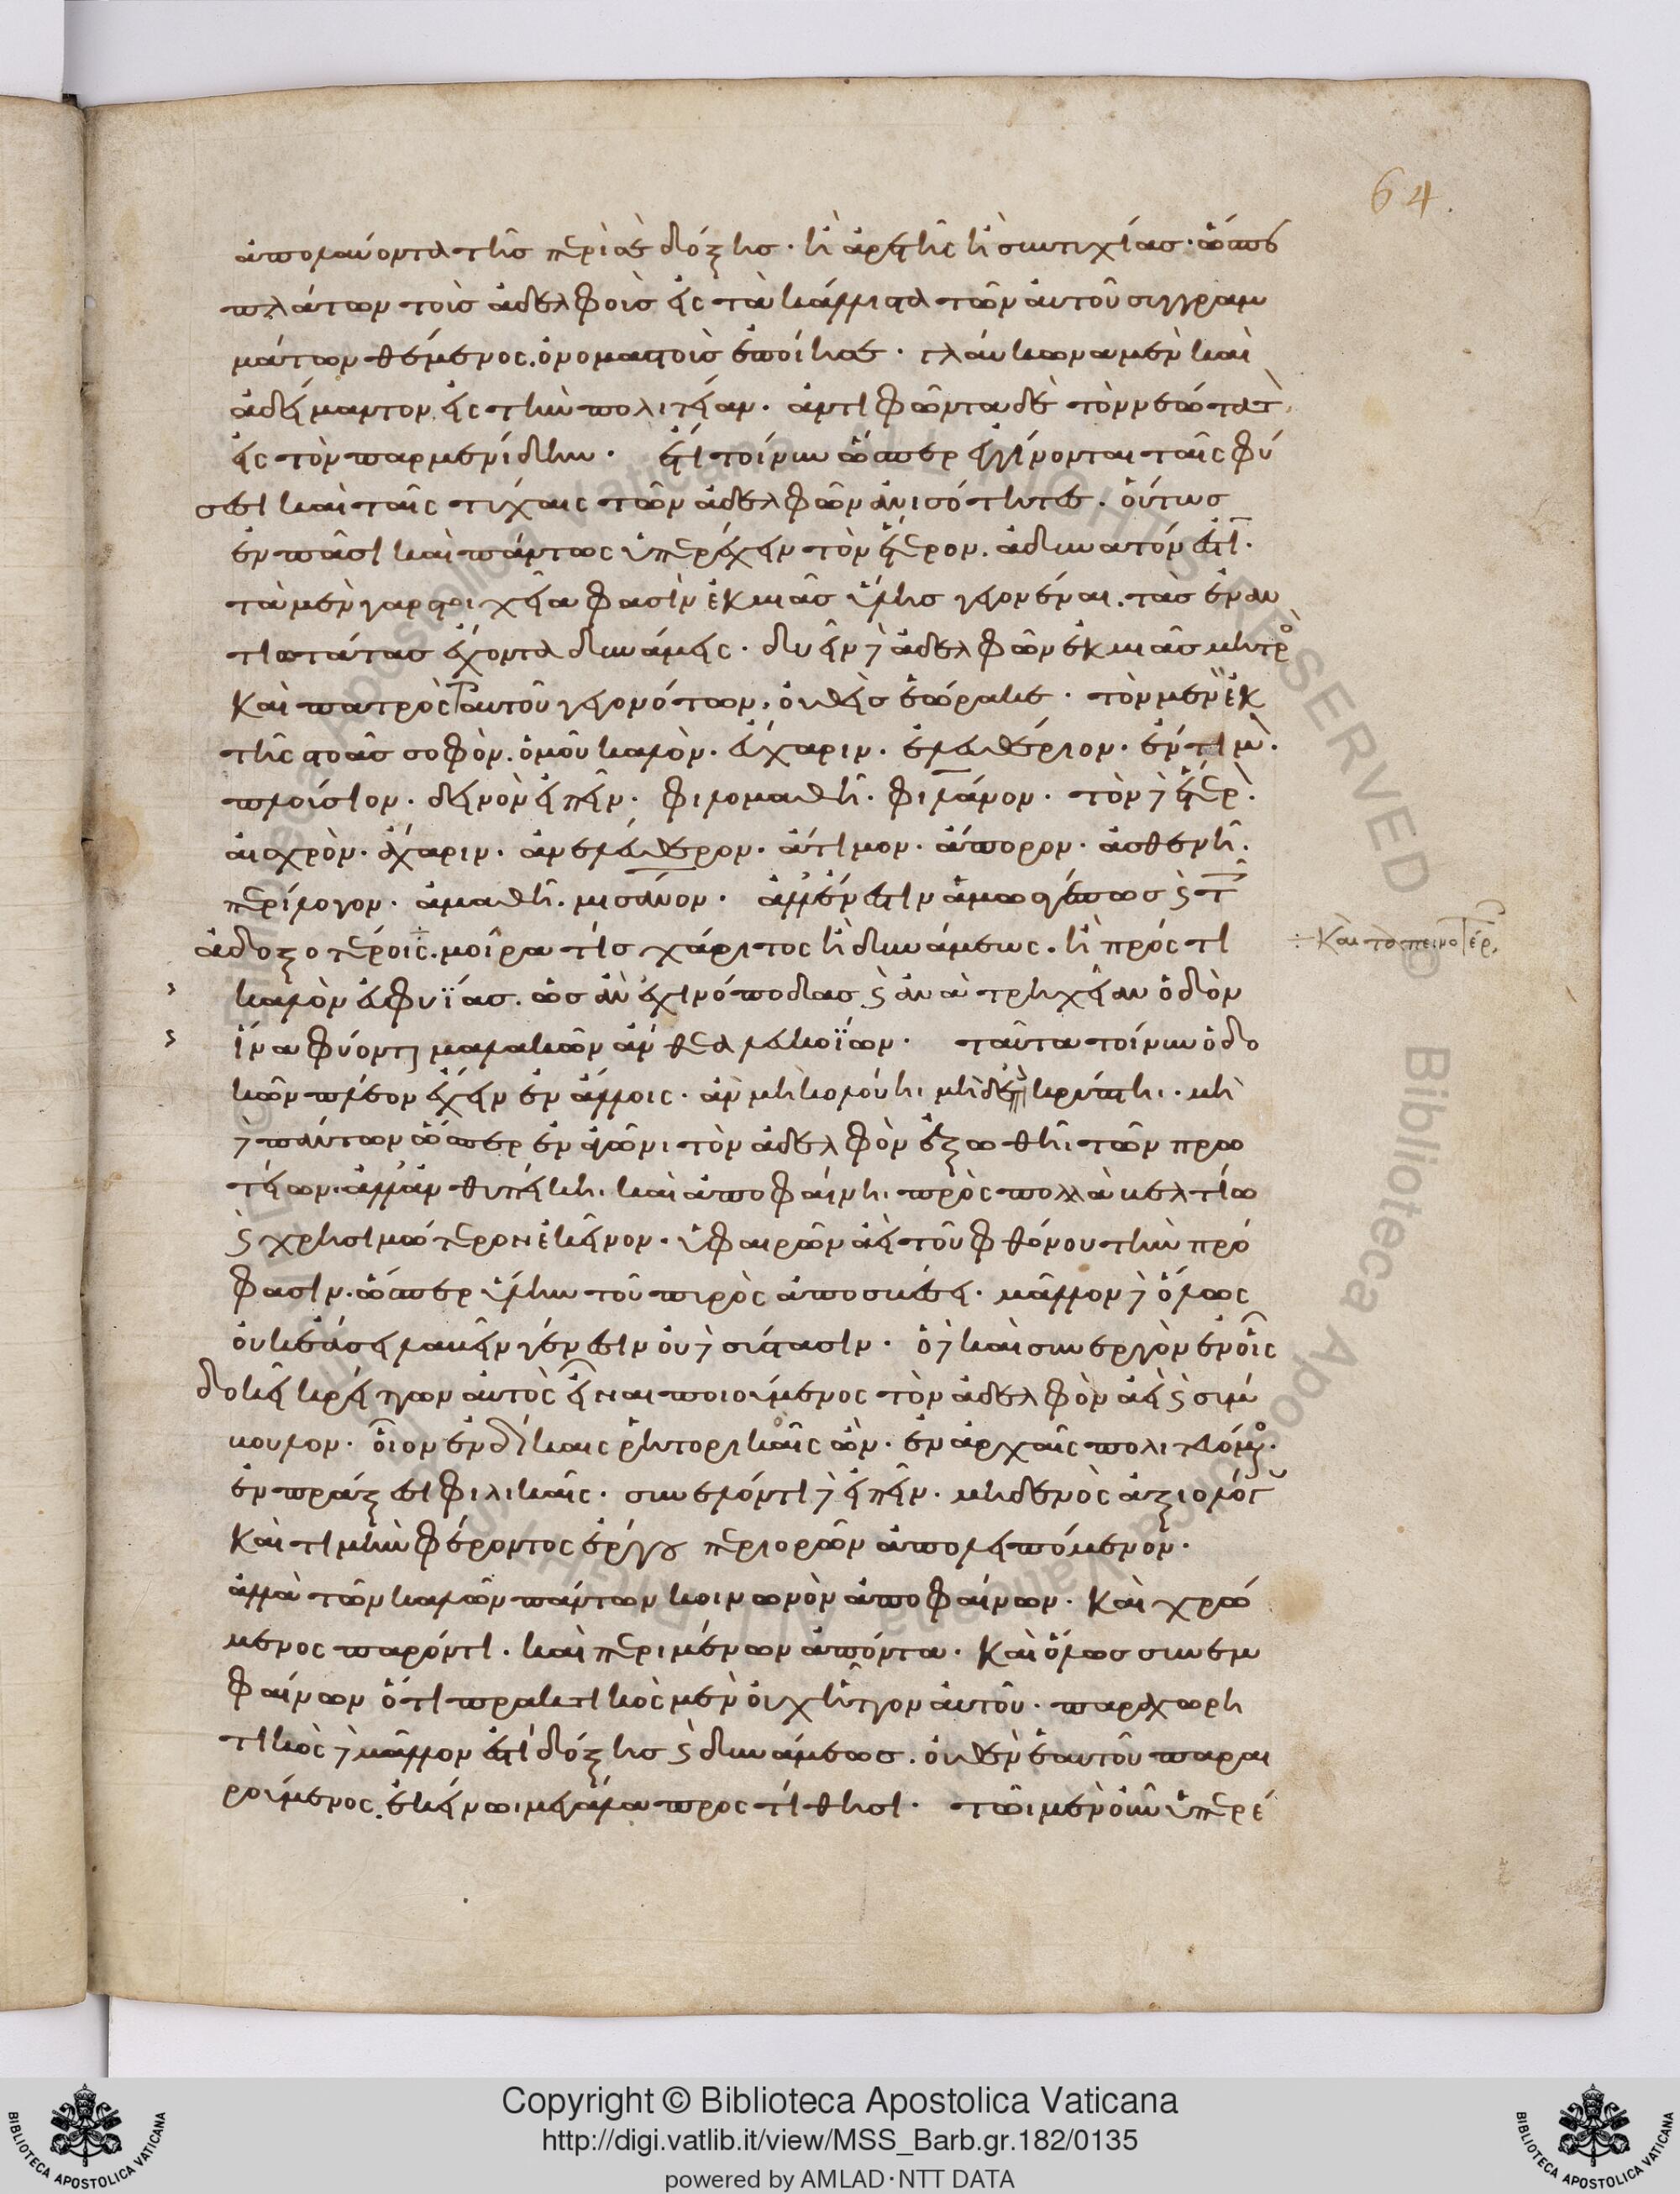 ἀπολαύοντα τῆς περὶ αὐτὸ δόξης · ἢ ἀρετῆς ἢ εὐτυχίας · ὥσπερ
πλάτων τοὺς ἀδελφοὺς εἰς τὰ κάλλιστα τῶν αὐτοῦ συγγραμ
μάτων θέμενος. ὀνομαστοὺς ἐποίησε · γλαύκωνα μὲν καὶ
ἀδείμαντον εἰς τὴν πολιτείαν · ἀντιφῶντα δὲ τὸν νεώτατ
εἰς τὸν παρμενίδην · ἔτι τοίνυν ὥσπερ ἐγγίνονται ταῖς φύ
σεσι καὶ ταῖς τύχαις τῶν ἀδελφῶν ἀνισότητες · οὕτως
ἐν πᾶσι καὶ πάντως ὑπερέχειν τὸν ἕτερον. ἀδύνατόν ἐστι ·
τὰ μὲν γὰρ στοιχεῖα φασὶν ἐκ μιᾶς ὕλης γεγονέναι. τὰς ἐναν
τιωτάτας ἔχοντα δυνάμεις · δυεῖν δ ἀδελφῶν ἐκ μιᾶς μητρο
καὶ πατρὸς τ αὐτοῦ γεγονότων, οὐδεὶς ἑώρακε · τὸν μὲν ἐκ
τῆς στοᾶς σοφὸν. ὁμοῦ καλὸν · εὔχαριν · ἐλευθέριον · ἔντιμ ·
πλούσιον · δεινὸν εἰπεῖν · φιλομαθῆ · φιλάνον · τὸν δ ἕτερ ·
αἰσχρὸν · ἄχαριν · ἀνελεύθερον · ἄτιμον · ἄπορον · ἀσθενῆ ·
περὶ λόγον · ἀμαθῆ · μισάνον · ἀλλ᾽ ἔνεστιν ἁμωσγέπως καὶ τ
ἀδοξοτέροις. μοῖρα τίς χάριτος ἢ δυνάμεως · ἢ πρός τι
καλὸν εὐφυΐας · ὡς ἀν᾽ ἐχινόποδας καὶ ἀνὰ τρηχεῖαν ὄδὸν
ἵνα φύονται μαλακῶν ἄνθεα λευκοΐων · ταῦτα τοίνυν ὁ δο
κῶν πλέον ἔχειν ἐν ἄλλοις · ἂν μὴ κολούη. μὴδὲ κρύπτη · μὴ
δὲ πάντων ὥσπερ ἐν ἀγῶνι τὸν ἀδελφὸν ἐξωθῆ τῶν πρω
τείων · ἀλλ᾽ ἀνθυπείκη. καὶ ἀποφαίνη. πρὸς πολλὰ βελτίω
καὶ χρησιμώτερον ἐκεῖνον · ὑφαιρῶν ἀεὶ τοῦ φθόνου τὴν πρό
φασιν · ὥσπερ ὕλην τοῦ πυρὸς ἀποσβέσει · μᾶλλον δ ὅλως
οὐκ ἐάσει λαβεῖν γένεσιν οὐδὲ σύστασιν · ὁ δὲ καὶ συνεργὸν ἐν οἷς
δοκεῖ κρείττων αὐτὸς εἶναι ποιούμενος τὸν ἀδελφὸν ἀεὶ καὶ σύμ
βουλον · οἷον ἐν δίκαις ῥητορικὸς ὢν · ἐν ἀρχαῖς πολιτευόμ ·
ἐν πράξεσι φιλικαῖς · συνελόντι δ εἰπεῖν · μηδενὸς ἀξιολόγ
καὶ τιμὴν φέροντος ἔργου περιορῶν ἀπολειπόμενον ·
ἀλλὰ τῶν καλῶν πάντων κοινωνὸν ἀποφαίνων · καὶ χρώ
μενος παρόντι · καὶ περιμένων ἀπόντα · καὶ ὅλως συνεμ
φαίνων ὅτι πρακτικὸς μὲν οὐχ ἧττον αὐτοῦ · παραχωρη
τικὸς δὲ μᾶλλον ἐστὶ δόξης καὶ δυνάμεως. οὐδὲν ἑαυτοῦ παραι
ρούμενος. ἐκείνωι μεγάλα προστίθησι · τῶι μὲν οὖν ὑπερέ
÷ καὶ ταπεινοτέρ,
64.
Copyright © Biblioteca Apostolica Vaticana
http://digi.vatlib.it/view/MSS_Barb.gr.182/0135
powered by AMLAD·NTT DATA